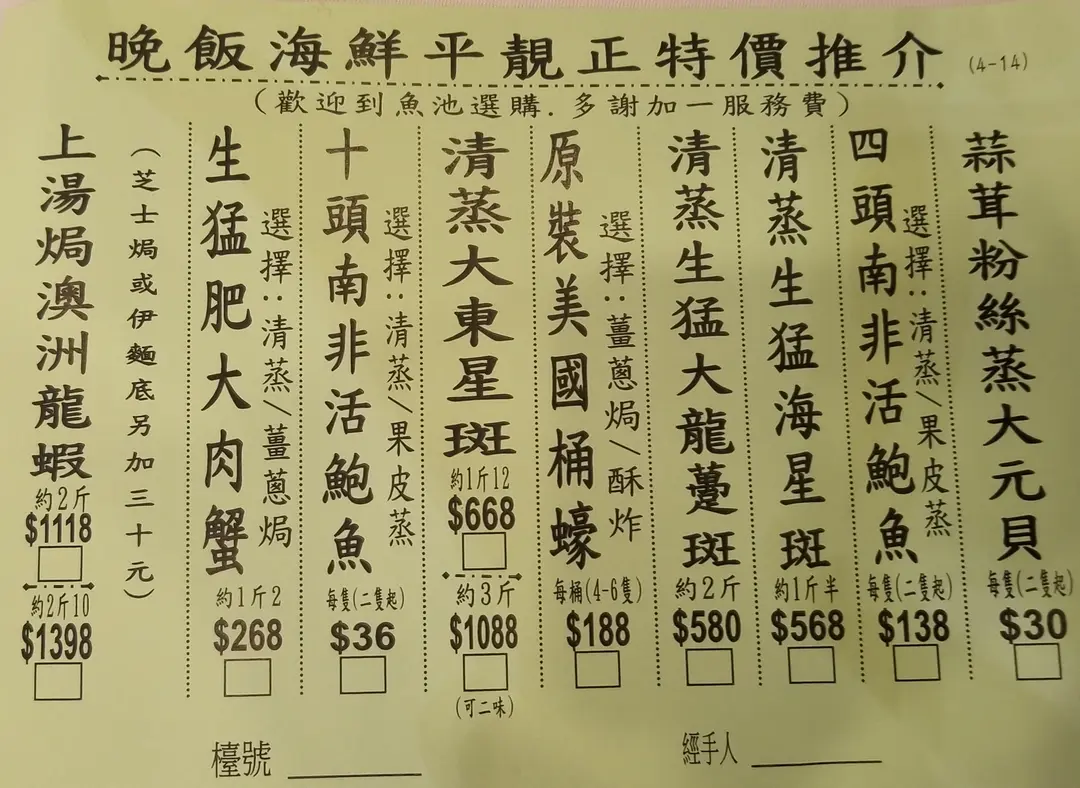 晚飯海鮮平靚正特價推介 (4-14)
(歡迎到魚池選購.多謝加一服務費)
蒜茸粉絲蒸大元貝
每隻(二隻起)
$30
四頭南非活鮑魚
選擇:清蒸/果皮蒸
每隻(二隻起)
$138
清蒸生猛海星斑
約1斤半
$568
清蒸生猛大龍躉斑
約2斤
$580
原裝美國桶蠔
選擇:薑蔥焗/酥炸
每桶(4-6隻)
$188
清蒸大東星斑
約1斤12
$668
約3斤
$1088
(可二味)
十頭南非活鮑魚
選擇:清蒸/果皮蒸
每隻(二隻起)
$36
生猛肥大肉蟹
選擇:清蒸/薑蔥焗
約1斤2
$268
上湯焗澳洲龍蝦
(芝士焗或伊麵底另加三十元)
約2斤
$1118
約2斤10
$1398
檯號
經手人